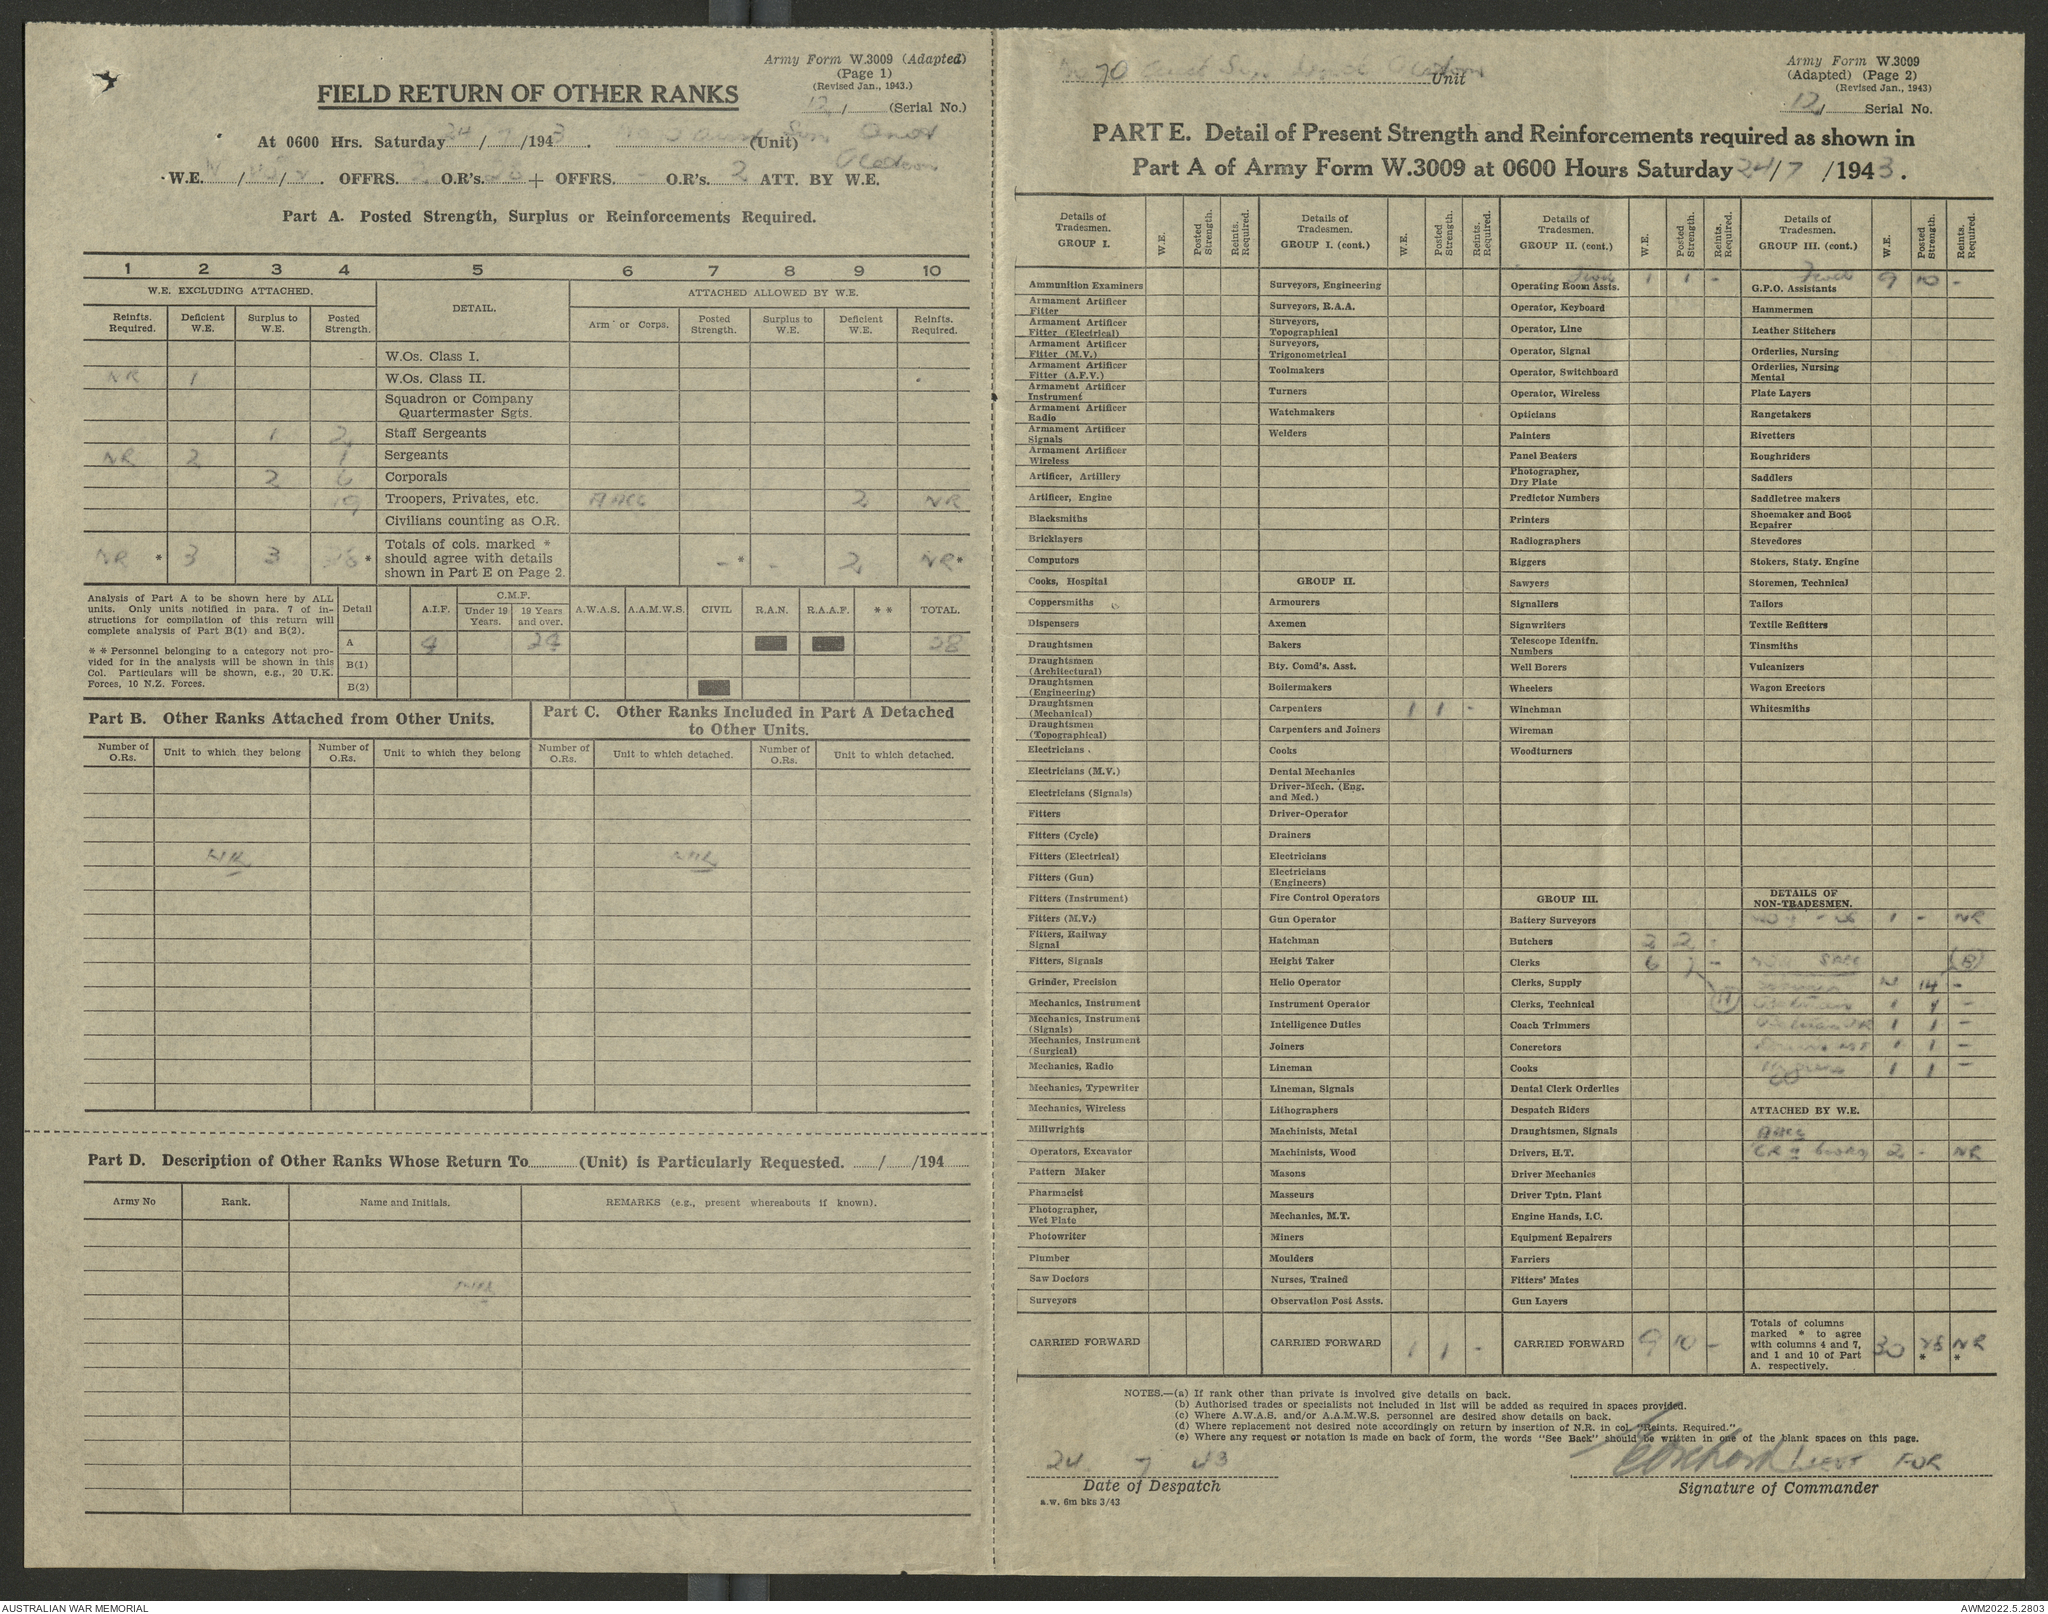 Army Form W.3009 (Adapted)
(Page 1)
(Revised Jan., 1943.)
12/ (Serial No.)
FIELD RETURN OF OTHER RANKS
At 0600 Hrs. Saturday 24/7/1943. (Unit)
W.E. / / . OFFRS. 2 O.R's. 28 + OFFRS. - O.R's. 2 ATT. BY W.E.
Part A. Posted Strength, Surplus or Reinforcements Required.
1 2 3 4 5 6 7 8 9 10
W.E. EXCLUDING ATTACHED. DETAIL. ATTACHED ALLOWED BY W.E.
Reinfts. Required. Deficient W.E. Surplus to W.E. Posted Strength. Arm or Corps. Posted Strength. Surplus to W.E. Deficient W.E. Reinfts. Required.
W.Os. Class I.
NR 1 W.Os. Class II.
Squadron or Company Quartermaster Sgts.
1 2 Staff Sergeants
NR 2 1 Sergeants
2 6 Corporals
19 Troopers, Privates, etc. AACC 2 NR
Civilians counting as O.R.
NR * 3 3 28 * Totals of cols. marked * should agree with details shown in Part E on Page 2. - * - 2 NR *
Analysis of Part A to be shown here by ALL units. Only units notified in para. 7 of instructions for compilation of this return will complete analysis of Part B(1) and B(2).
* * Personnel belonging to a category not provided for in the analysis will be shown in this Col. Particulars will be shown, e.g., 20 U.K. Forces, 10 N.Z. Forces.
Detail A.I.F. C.M.F. Under 19 Years. 19 Years and over. A.W.A.S. A.A.M.W.S. CIVIL R.A.N. R.A.A.F. * * TOTAL.
A 4 24 28
B(1)
B(2)
Part B. Other Ranks Attached from Other Units.
Part C. Other Ranks Included in Part A Detached to Other Units.
Number of O.Rs. Unit to which they belong Number of O.Rs. Unit to which they belong Number of O.Rs. Unit to which detached. Number of O.Rs. Unit to which detached.
NIL NIL
Part D. Description of Other Ranks Whose Return To (Unit) is Particularly Requested. / /194
Army No Rank. Name and Initials. REMARKS (e.g., present whereabouts if known).
NIL
70 Unit
Army Form W.3009
(Adapted) (Page 2)
(Revised Jan., 1943)
12/ Serial No.
PART E. Detail of Present Strength and Reinforcements required as shown in
Part A of Army Form W.3009 at 0600 Hours Saturday 24/7/1943.
Details of Tradesmen. GROUP I. W.E. Posted Strength. Reints. Required.
Ammunition Examiners
Armament Artificer Fitter
Armament Artificer Fitter (Electrical)
Armament Artificer Fitter (M.V.)
Armament Artificer Fitter (A.F.V.)
Armament Artificer Instrument
Armament Artificer Radio
Armament Artificer Signals
Armament Artificer Wireless
Artificer, Artillery
Artificer, Engine
Blacksmiths
Bricklayers
Computors
Cooks, Hospital
Coppersmiths
Dispensers
Draughtsmen
Draughtsmen (Architectural)
Draughtsmen (Engineering)
Draughtsmen (Mechanical)
Draughtsmen (Topographical)
Electricians
Electricians (M.V.)
Electricians (Signals)
Fitters
Fitters (Cycle)
Fitters (Electrical)
Fitters (Gun)
Fitters (Instrument)
Fitters (M.V.)
Fitters, Railway Signal
Fitters, Signals
Grinder, Precision
Mechanics, Instrument
Mechanics, Instrument (Signals)
Mechanics, Instrument (Surgical)
Mechanics, Radio
Mechanics, Typewriter
Mechanics, Wireless
Millwrights
Operators, Excavator
Pattern Maker
Pharmacist
Photographer, Wet Plate
Photowriter
Plumber
Saw Doctors
Surveyors
CARRIED FORWARD
Details of Tradesmen. GROUP I. (cont.) W.E. Posted Strength. Reints. Required.
Surveyors, Engineering
Surveyors, R.A.A.
Surveyors, Topographical
Surveyors, Trigonometrical
Toolmakers
Turners
Watchmakers
Welders
GROUP II.
Armourers
Axemen
Bakers
Bty. Comd's. Asst.
Boilermakers
Carpenters 1 1 -
Carpenters and Joiners
Cooks
Dental Mechanics
Driver-Mech. (Eng. and Med.)
Driver-Operator
Drainers
Electricians
Electricians (Engineers)
Fire Control Operators
Gun Operator
Hatchman
Height Taker
Helio Operator
Instrument Operator
Intelligence Duties
Joiners
Lineman
Lineman, Signals
Lithographers
Machinists, Metal
Machinists, Wood
Masons
Masseurs
Mechanics, M.T.
Miners
Moulders
Nurses, Trained
Observation Post Assts.
CARRIED FORWARD 1 1 -
Details of Tradesmen. GROUP II. (cont.) W.E. Posted Strength. Reints. Required.
Fwd 1 1 -
Operating Room Assts.
Operator, Keyboard
Operator, Line
Operator, Signal
Operator, Switchboard
Operator, Wireless
Opticians
Painters
Panel Beaters
Photographer, Dry Plate
Predictor Numbers
Printers
Radiographers
Riggers
Sawyers
Signallers
Signwriters
Telescope Identfn. Numbers
Well Borers
Wheelers
Winchman
Wireman
Woodturners
GROUP III.
Battery Surveyors
Butchers 2 2 -
Clerks 6 7 -
Clerks, Supply
Clerks, Technical
Coach Trimmers
Concretors
Cooks
Dental Clerk Orderlies
Despatch Riders
Draughtsmen, Signals
Drivers, H.T.
Driver Mechanics
Driver Tptn. Plant
Engine Hands, I.C.
Equipment Repairers
Farriers
Fitters' Mates
Gun Layers
CARRIED FORWARD 9 10 -
Details of Tradesmen. GROUP III. (cont.) W.E. Posted Strength. Reints. Required.
Fwd 9 10 -
G.P.O. Assistants
Hammermen
Leather Stitchers
Orderlies, Nursing
Orderlies, Nursing Mental
Plate Layers
Rangetakers
Rivetters
Roughriders
Saddlers
Saddletree makers
Shoemaker and Boot Repairer
Stevedores
Stokers, Staty. Engine
Storemen, Technical
Tailors
Textile Refitters
Tinsmiths
Vulcanizers
Wagon Erectors
Whitesmiths
DETAILS OF NON-TRADESMEN.
1 - NR
SPEC (B)
14 -
1 1 -
1 1 -
1 1 -
1 1 -
ATTACHED BY W.E.
AACC
2 - NR
Totals of columns marked * to agree with columns 4 and 7, and 1 and 10 of Part A. respectively. 30 28 * NR *
NOTES.—(a) If rank other than private is involved give details on back.
(b) Authorised trades or specialists not included in list will be added as required in spaces provided.
(c) Where A.W.A.S. and/or A.A.M.W.S. personnel are desired show details on back.
(d) Where replacement not desired note accordingly on return by insertion of N.R. in col. "Reints. Required."
(e) Where any request or notation is made on back of form, the words "See Back" should be written in one of the blank spaces on this page.
24 7 43
LIEUT FOR
Date of Despatch
Signature of Commander
a.w. 6m bks 3/43
AUSTRALIAN WAR MEMORIAL
AWM2022.5.2803